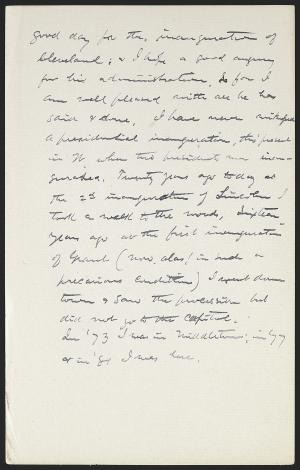 good day for the inauguration of
Cleveland; & I hope a good augury
for his administration. So far I
am well pleased with all he has
said & done. I have never witnessed
a presidential inauguration, tho' present
in W. when two presidents were inau-
gurated. Twenty years ago today at
the 2nd inauguration of Lincoln I
took a walk to the woods. Sixteen
years ago at the first inauguration
of Grant (now, alas! in such a
precarious condition) I went down
town & saw the procession but
did not go to the capitol.
In '73 I was in Middletown; in '77
& in '81 I was here.